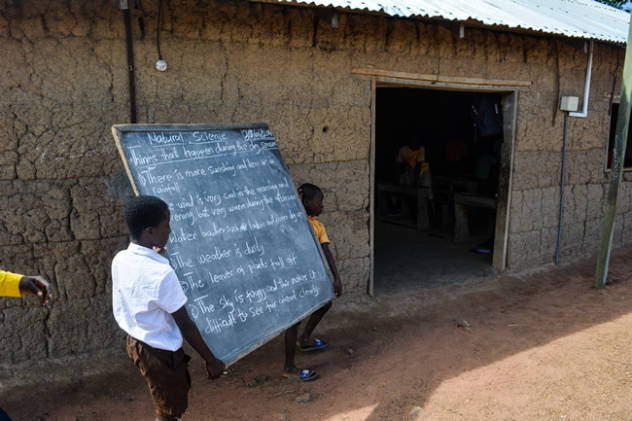 Natural Science
Things that happen during the dry season
There is more sunshine and less or no
rainfall
The wind is very cool in the morning and
evening but very warm during the afternoon
Water bodies
The weather is dusty
The leaves of plants fall off
The sky is foggy and this makes it
difficult to see far ahead clearly